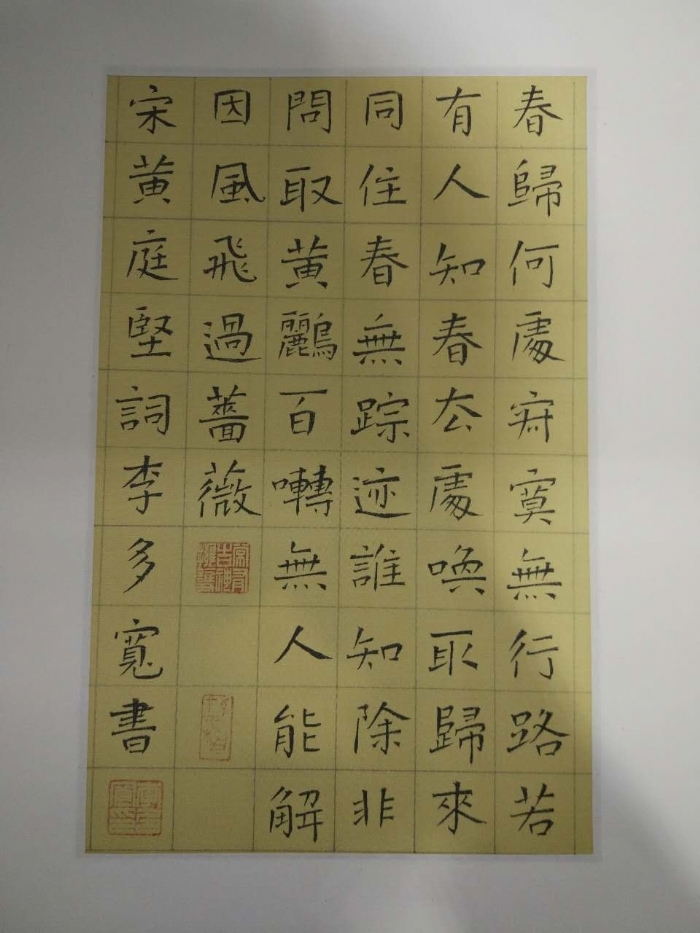 春歸何處寂寞無行路若
有人知春去處喚取歸來
同住春無踪迹誰知除非
問取黄鸝百囀無人能解
因風飛過薔薇
宋黄庭堅詞李多寬書